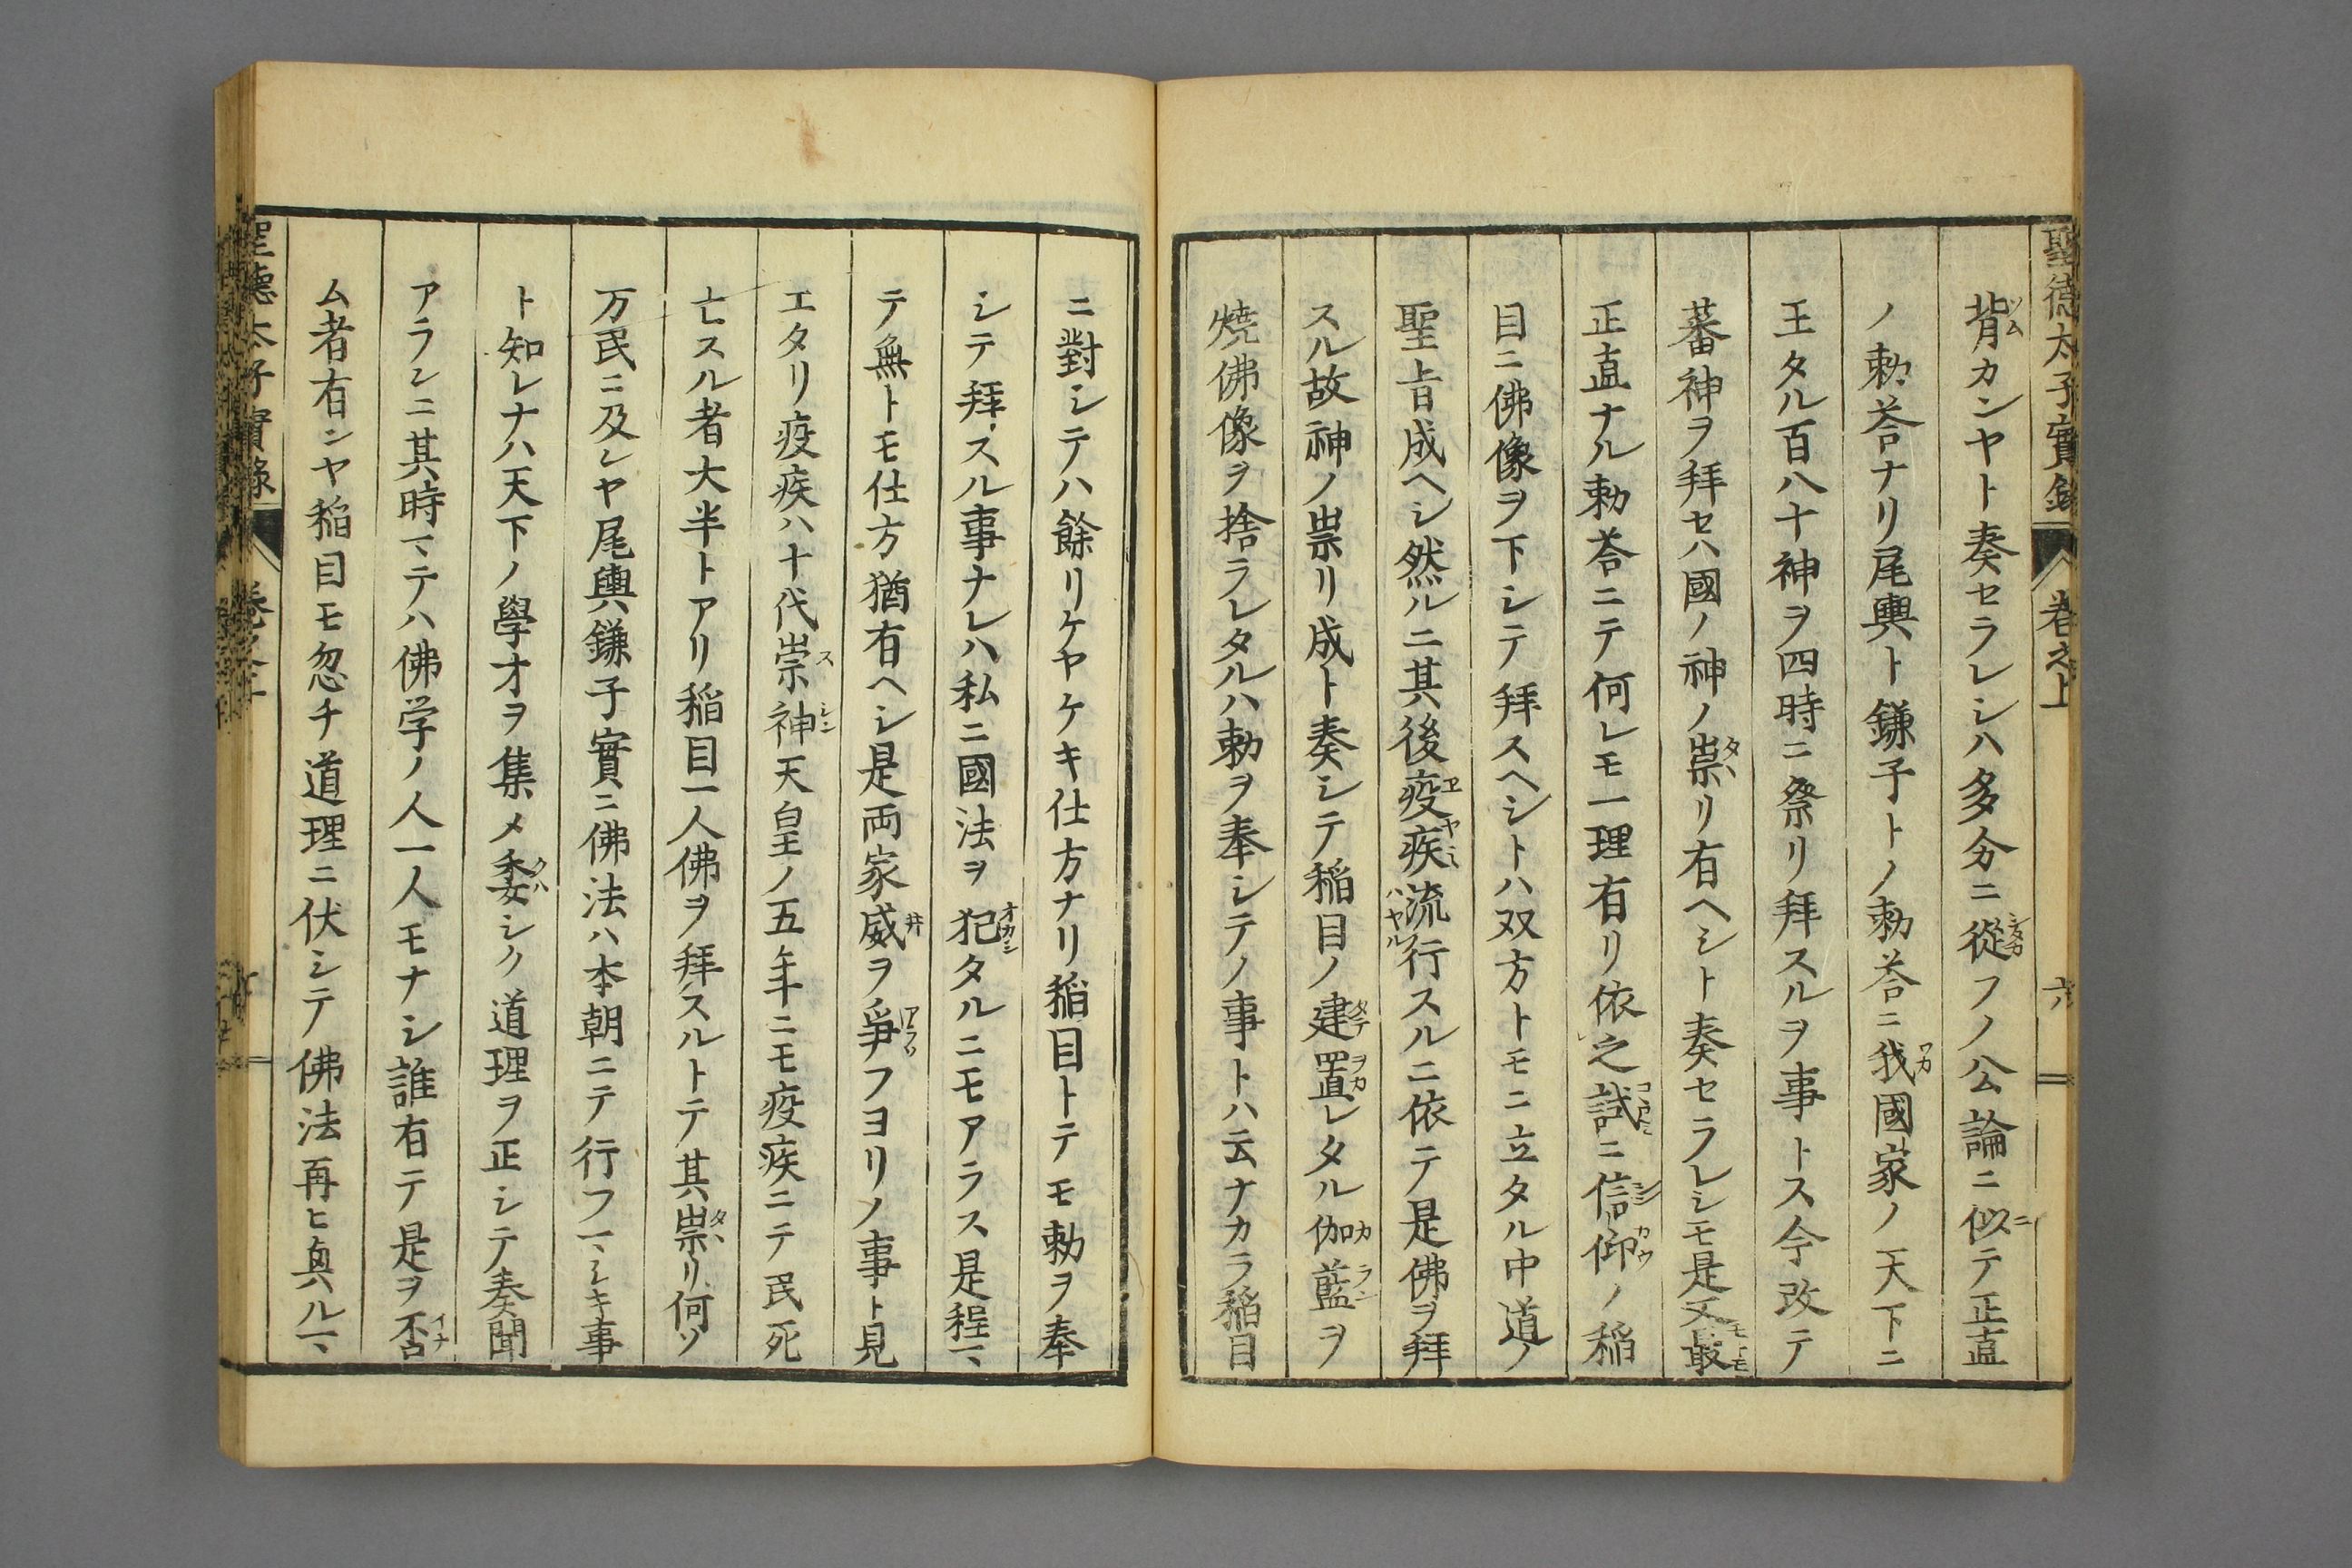 聖徳太子實録 巻之上 六
背カンヤト奏セラレシハ多分ニ從フノ公論ニ似テ正直
ノ勅荅ナリ尾輿ト鎌子トノ勅荅ニ我國家ノ天下ニ
王タル百八十神ヲ四時ニ祭リ拜スルヲ事トス今改テ
蕃神ヲ拜セハ國ノ神ノ祟リ有ヘシト奏セラレシモ是又最
正直ナル勅荅ニテ何レモ一理有リ依之試ニ信仰ノ稲
目ニ佛像ヲ下シテ拜スヘシトハ双方トモニ立タル中道ノ
聖旨成ヘシ然ルニ其後疫疾流行スルニ依テ是佛ヲ拜
スル故神ノ祟リ成ト奏シテ稲目ノ建置レタル伽藍ヲ
燒佛像ヲ捨ラレタルハ勅ヲ奉シテノ事トハ云ナカラ稲目
ニ對シテハ餘リケヤケキ仕方ナリ稲目トテモ勅ヲ奉
シテ拜スル事ナレハ私ニ國法ヲ犯タルニモアラス是程ヿ
テ無トモ仕方猶有ヘシ是両家威ヲ爭フヨリノ事ト見
エタリ疫疾ハ十代崇神天皇ノ五年ニモ疫疾ニテ民死
亡スル者大半トアリ稲目一人佛ヲ拜スルトテ其祟リ何ソ
万民ニ及ンヤ尾輿鎌子實ニ佛法ハ本朝ニテ行フヿシキ事
ト知レナハ天下ノ學才ヲ集メ委シク道理ヲ正シテ奏聞
アランニ其時ヿテハ佛学ノ人一人モナシ誰有テ是ヲ否
ム者有ンヤ稲目モ忽チ道理ニ伏シテ佛法再ヒ興ルヿ
聖徳太子實録